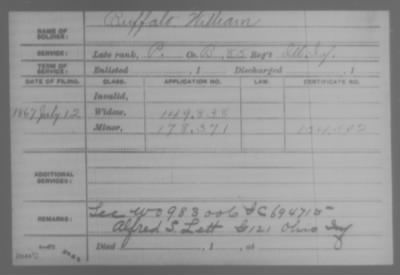 NAME OF SOLDIER: Buffalo William
SERVICE: Late rank, P. Co. B, 82 Reg't Ill. Inf.
TERM OF SERVICE: Enlisted , 1 Discharged , 1
DATE OF FILING. CLASS. APPLICATION NO. LAW. CERTIFICATE NO.
Invalid,
1867 July 12 Widow, 149.838
Minor, 178.371
ADDITIONAL SERVICES:
REMARKS: See WO 983006 & C 694715
Alfred S. Lett G 121 Ohio Inf
Died , 1 , at